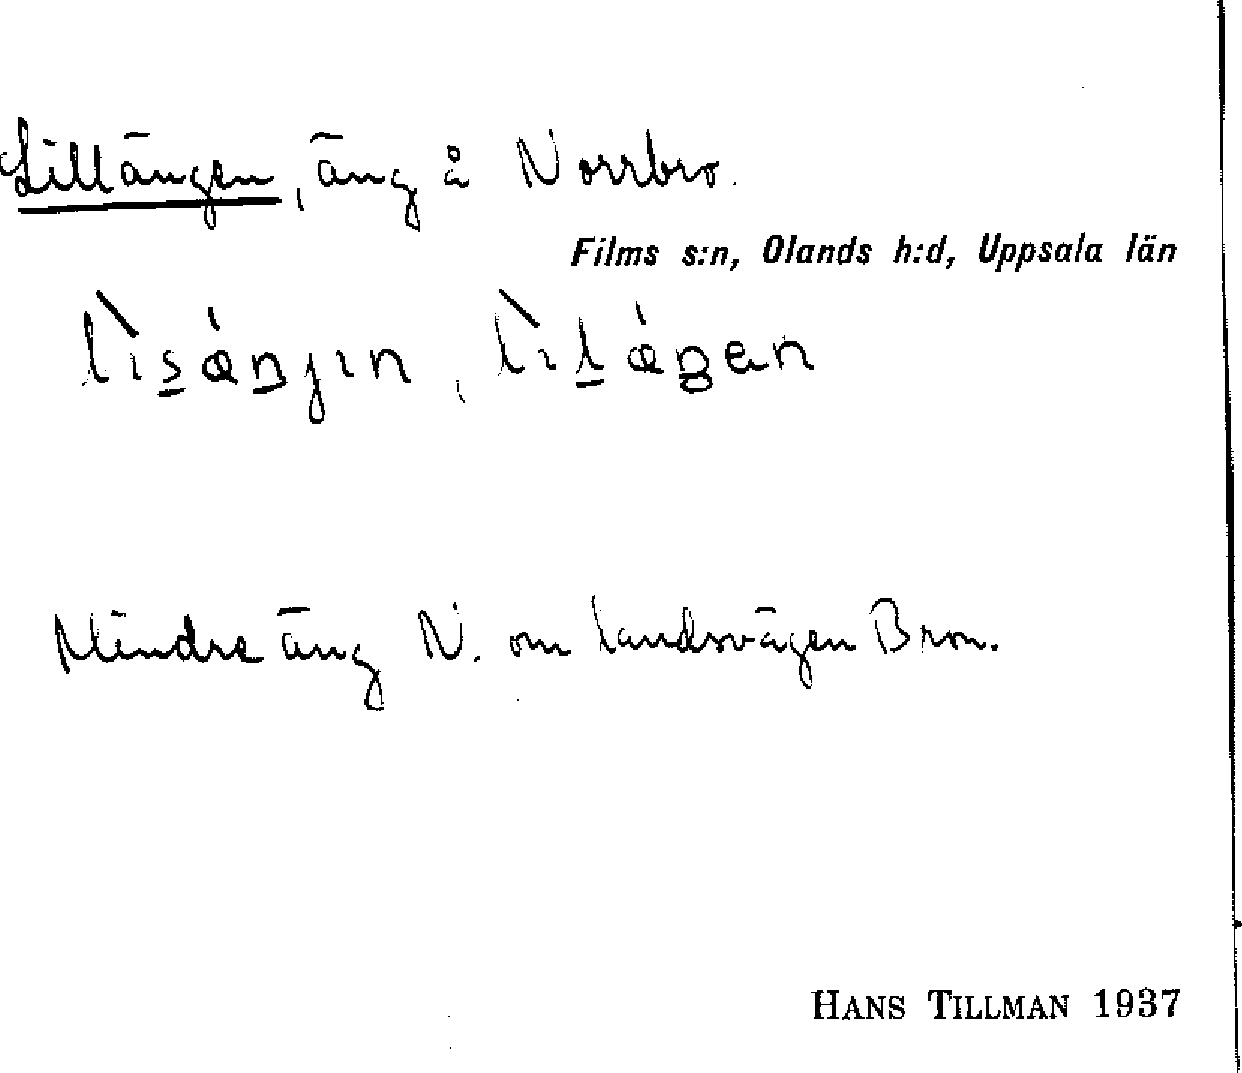 Lillängen, äng å Norrbro.
Films s:n, Olands h:d, Uppsala län
Mindre äng N. om landsvägen Bron.
HANS TILLMAN 1937